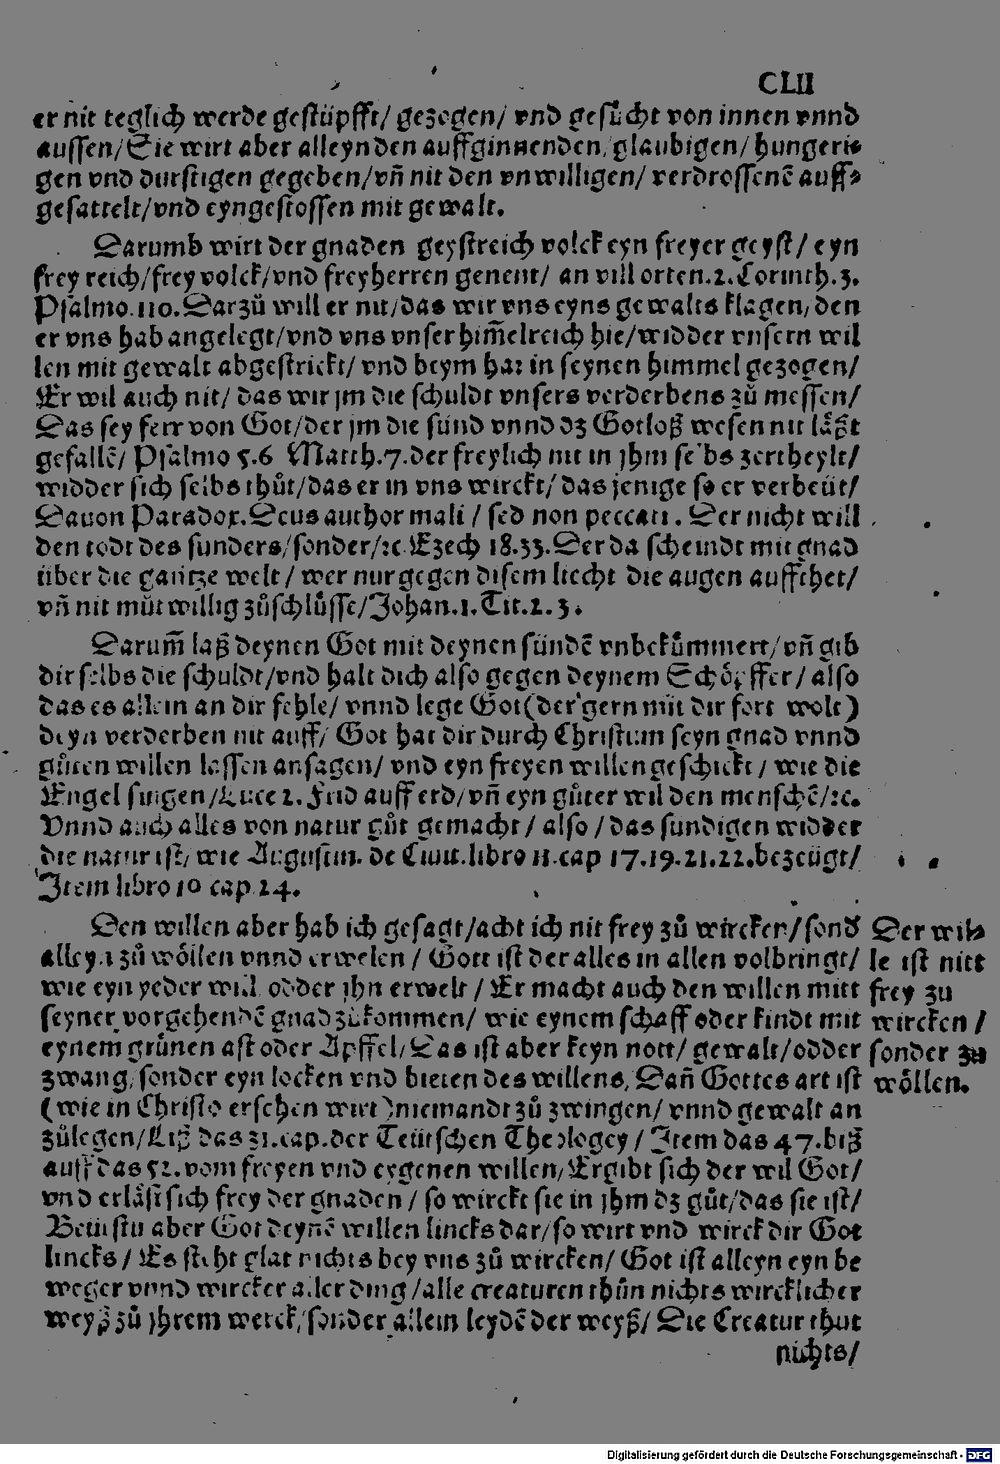 CLII
er nit teglich werde gestüpfft/ gezogen/ vnd gesůcht von innen vnnd
aussen/ Sie wirt aber alleyn den auffginnenden/ glaubigen/ hungeri⸗
gen vnd durstigen gegeben/ vn̄ nit den vnwilligen/ verdrossenē auff⸗
gesattelt/ vnd eyngestossen mit gewalt.
Darumb wirt der gnaden geystreich volck eyn freyer geyst/ eyn
frey reich/ frey volck/ vnd freyherren genent/ an vill orten. 2. Corinth. 3.
Psalmo. 110. Darzů will er nit/ das wir vns eyns gewalts klagen/ den
er vns hab angelegt/ vnd vns vnser him̄elreich hie/ widder vnsern wil
len mit gewalt abgestrickt/ vnd beym har in seynen himmel gezogen/
Er wil auch nit/ das wir jm die schuldt vnsers verderbens zů messen/
Das sey ferr von Got/ der jm die sünd vnnd dz Gotloß wesen nit läßt
gefallē/ Psalmo 5. 6 Matth. 7. der freylich nit in jhm selbs zertheylt/
widder sich selbs thůt/ das er in vns wirckt/ das jenige so er verbeüt/
Dauon Paradox. Deus author mali / sed non peccati. Der nicht will
den todt des sunders/ sonder/ ꝛc. Ezech 18. 33. Der da scheindt mit gnad
über die gantze welt / wer nur gegen disem liecht die augen auffthet/
vn̄ nit můtwillig zůschlüsse/ Johan. 1. Tit. 2. 3.
Darum̄ laß deynen Got mit deynen sündē vnbekümmert/ vn̄ gib
dir selbs die schuldt/ vnd halt dich also gegen deynem Schöpffer/ also
das es allein an dir fehle/ vnnd lege Got (der gern mit dir fort wolt)
deyn verderben nit auff/ Got hat dir durch Christum seyn gnad vnnd
gůten willen lassen ansagen/ vnd eyn freyen willen geschickt / wie die
Engel singen/ Luce 2. Frid auff erd/ vn̄ eyn gůter wil den menschē/ ꝛc.
Vnnd auch alles von natur gůt gemacht / also / das sundigen widder
die natur ist/ wie Augustin. de Ciuit. libro 11. cap 17. 19. 21. 22. bezeügt/
Item libro 10 cap 24.
Den willen aber hab ich gesagt/ acht ich nit frey zů wircken/ sonď
alleyn zů wöllen vnnd erwelen / Gott ist der alles in allen volbringt/
wie eyn yeder will odder jhn erwelt / Er macht auch den willen mitt
seyner vorgehendē gnad zůkommen/ wie eynem schaff oder kindt mit
eynem grünen ast oder Apffel/ Das ist aber keyn nott/ gewalt/ odder
zwang/ sonder eyn locken vnd bieten des willens/ Dan̄ Gottes art ist
(wie in Christo ersehen wirt) niemandt zů zwingen/ vnnd gewalt an
zůlegen/ Liß das 31. cap. der Teütschen Theologey / Item das 47. biß
auff das 52. vom freyen vnd eygenen willen/ Ergibt sich der wil Got/
vnd erläst sich frey der gnaden / so wirckt sie in jhm dz gůt/ das sie ist/
Beütstu aber Got deynē willen lincks dar/ so wirt vnd wirck dir Got
lincks / Es steht glat nichts bey vns zů wircken/ Got ist alleyn eyn be
weger vnnd wircker aller ding / alle creaturen thůn nichts wircklicher
weyß zů jhrem werck/ sonder allein leydē der weyß/ Die Creatur thut
nichts/
Der wil⸗
le ist nitt
frey zu
wircken /
sonder zu
wöllen.
Digitalisierung gefördert durch die Deutsche Forschungsgemeinschaft - DFG